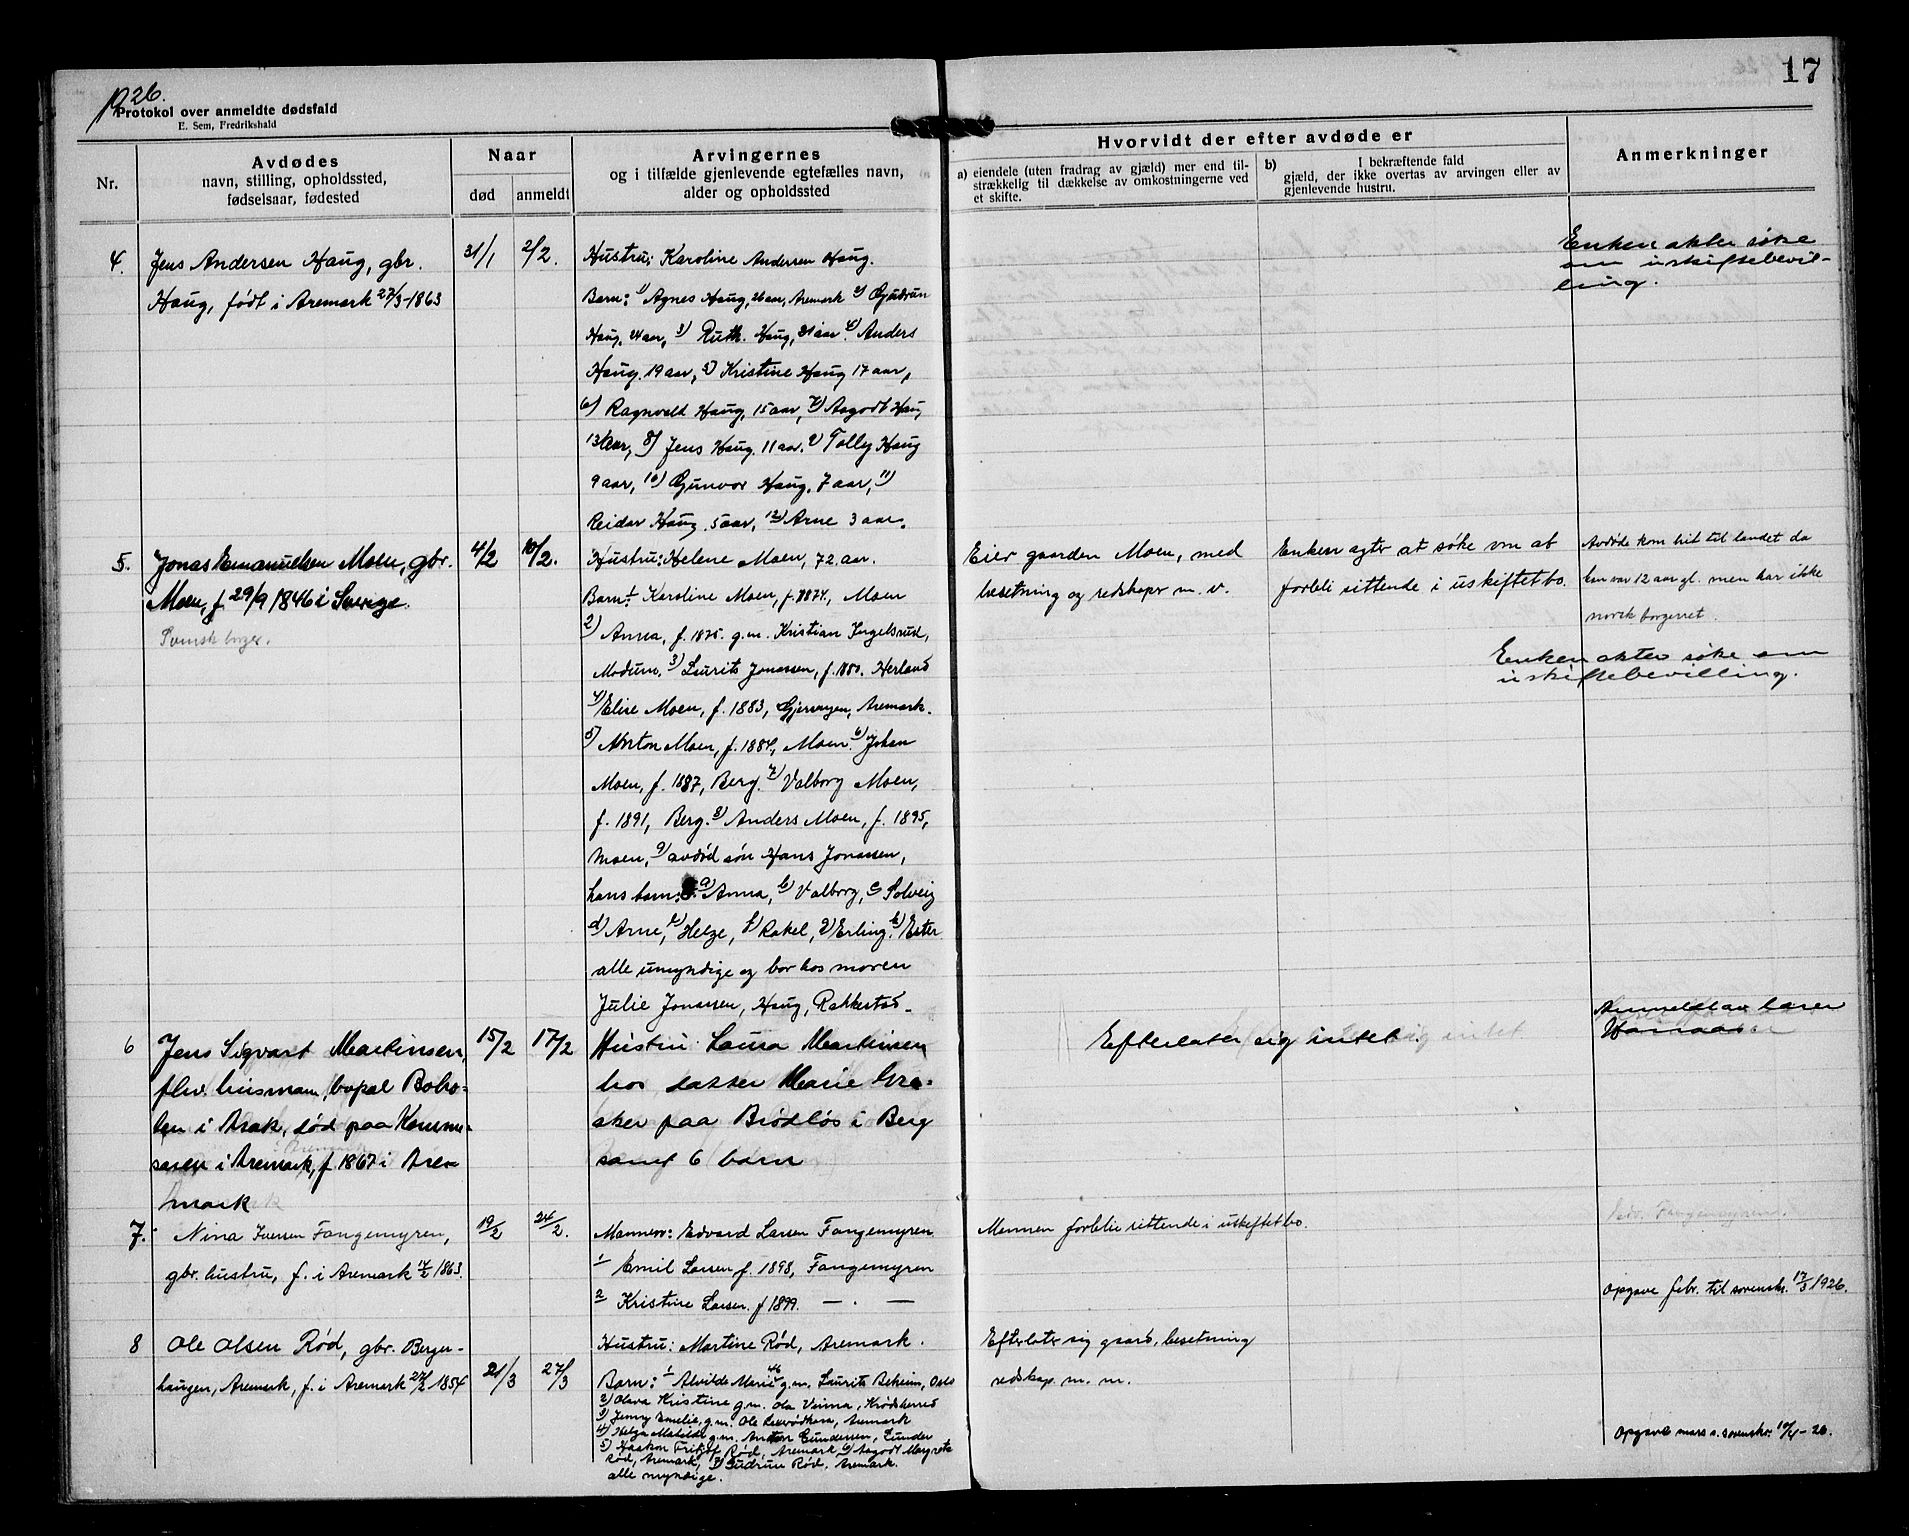 1926.
17
Protokol over anmeldte dødsfald
E. Sem, Fredrikshald
Nr.
Avdødes
navn, stilling, opholdssted,
fødselsaar, fødested
Naar
død
anmeldt
Arvingernes
og i tilfælde gjenlevende egtefælles navn,
alder og opholdssted
Hvorvidt der efter avdøde er
a) eiendele (uten fradrag av gjæld) mer end til-
strækkelig til dækkelse av omkostningerne ved
et skifte.
b) I bekræftende fald
gjæld, der ikke overtas av arvingen eller av
gjenlevende hustru.
Anmerkninger
4.
Jens Andersen Haug, gbr.
Haug, født i Aremark 27/3-1863
31/1
2/2.
Hustru: Karoline Andersen Haug.
Barn: 1) Agnes Haug, 26 aar, Aremark 2) Gudrun
Haug, 24 aar, 3) Ruth Haug, 21 aar. 4) Anders
Haug, 19 aar, 5) Kristine Haug 17 aar,
6) Ragnvald Haug, 15 aar, 7) Aagodt Haug
13 aar, 8) Jens Haug. 11 aar. 9) Tolley Haug
9 aar, 10) Gunvor Haug, 7 aar, 11)
Reidar Haug 5 aar, 12) Arne 3 aar.
Enken akter søke
om uskiftebevil-
ling.
5.
Jonas Emanuelsen Moen, gbr.
Moen, f. 29/9 1846 i Sverige.
Svensk borger.
4/2
10/2.
Hustru: Helene Moen, 72 aar.
Barn: 1 Karoline Moen, f. 1874, Moen
2) Anna, f. 1875. g.m. Kristian Ingelsrud,
Modum. 3) Laurits Jonassen, f. 1880. Herland
4) Elise Moen, f. 1883, Aremark.
5) Morton Moen, f. 1884, Moen. 6) Johan
Moen, f. 1887, Berg. 7) Valborg Moen,
f. 1891, Berg. 8) Anders Moen, f. 1895,
Moen, 9) avdød søn Hans Jonassen,
hans barn: a) Anna, b) Valborg, c) Solveig
d) Arne, e) Helge, f) Rakel, g) Erling. h) Ester
alle umyndige og bor hos moren
Julie Jonassen, Haug, Rakkestad.
Eier gaarden Moen, med
besetning og redskaper m. v.
Enken agter at søke om at
forbli sittende i uskiftet bo.
Avdøde kom hit til landet da
han var 12 aar gl. men har ikke
norsk borgerret.
Enken akter søke om
uskiftebevilling.
6
Jens Sigvart Martinsen,
fhv. husmann, bopæl Bobo-
ten i Arak, død paa Kommu-
nen i Aremark, f. 1867 i Are-
mark
15/2
17/2
Hustru Laura Martinsen
hos datter Marie Gra-
aker paa Brødløs i Berg
samt 6 barn
Efterlater sig intet
Anmeldt av lærer
7.
Nina Iversen Fangemyren,
gbr. hustru, f. i Aremark 1863.
19/2
24/2.
Mannen: Edvard Larsen Fangemyren
1 Emil Larsen f. 1898, Fangemyren
2 Kristine Larsen. f 1899. — . —
Mannen forblir sittende i uskiftet bo.
Opgave febr. til sorensk. 17/3 1926.
8
Ole Olsen Rød, gbr. Berger-
haugen, Aremark, f. i Aremark 1854
21/3
27/3
Hustru: Martine Rød, Aremark.
Barn: 1 Alvilde Marie 46 g.m. Laurits Beheim, Oslo
2) Olava Kristine g.m. Ola Veima, Krødsherred
3) Jenny Emelie, g.m. Ole Aremark
4) Helga Matilde g.m. Anton Gundersen, Lunder
5) Haakon Fritjof Rød, Aremark 6) Aagodt Margrete
Rød, Aremark, 7) Gudrun Rød, Aremark.
alle myndige.
Efterlater sig gaard, besetning
redskap m. m.
Opgave mars s. sorenskr. 10/4-26.